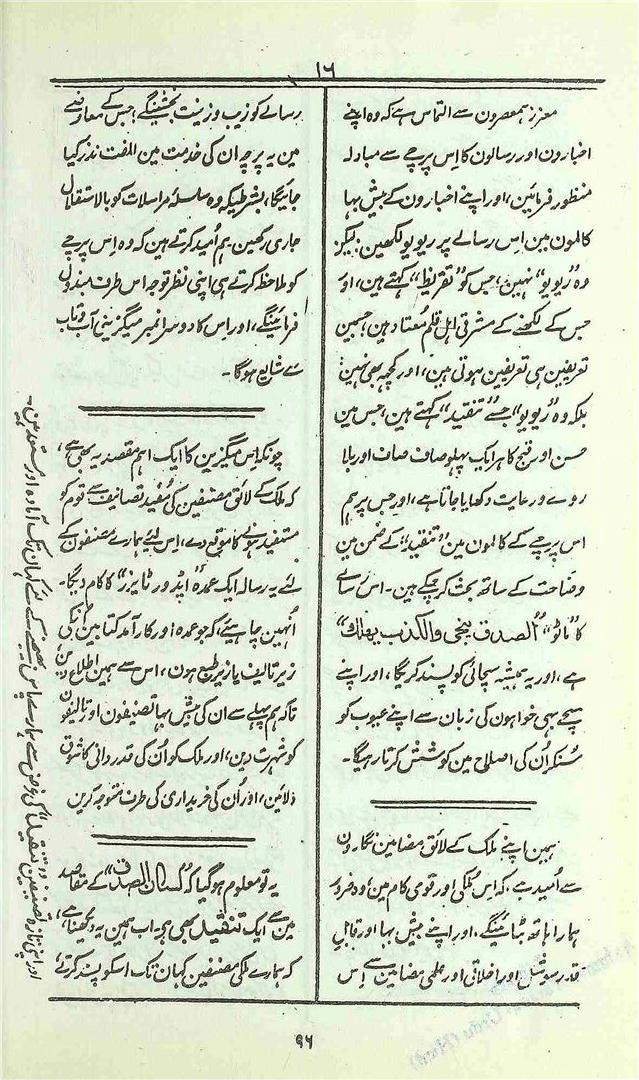 ۱۶
معزز ہمعصرون سے التماس ہے کہ وہ اپنے
اخبارون اور رسالون کا اِس پرچے سے مبادلہ
منظور فرمائین، اور اپنے اخبارون کے بیش بہا
کالمون مین اِس رسالے پر ریویو لکھین؛ لیکن
وہ "ریویو" نہین؛ جس کو "تقریظ" کہتے ہین، اور
جس کے لکھنے کے مشرقی اہل قلم معتاد ہین؛ جسمین
تعریفین ہی تعریفین ہوتی ہین، اور کچھ بھی نہین
بلکہ وہ "ریویو" جسے "تنقید" کہتے ہین؛ جس مین
حسن اور قبح کا ہر ایک پہلو صاف صاف اور بلا
روے و رعایت دکھایا جاتا ہے، اور جس پر ہم
اس پرچے کے کالمون مین "تنقید" کے ضمن مین
وضاحت کے ساتھ بحث کر چکے ہین۔ اس رسالے
کا "ماٹو" "الصدق ینجی والکذب یھلک"
ہے، اور یہ ہمیشہ سچائی کو پسند کریگا، اور اپنے
سچے بہی خواہون کی زبان سے اپنے عیوب کو
سُنکر اُن کی اصلاح مین کوشش کرتا رہیگا۔
ہمین اپنے ملک کے لائق مضامین نگارون
سے اُمید ہے کہ اس مُلکی اور قومی کام مین وہ ضرور
ہمارا ہاتھ بٹائینگے، اور اپنے بیش بہا اور قابلِ
قدر سوشل اور اخلاقی اور علمی مضامین سے اِس
رسالے کو زیب و زینت بخشینگے؛ جس کے معاوضے
مین یہ پرچہ ان کی خدمت مین المفت نذر کیا
جائیگا، بشرطیکہ وہ سلسلۂ مراسلات کو بالاستقلال
جاری رکھین۔ ہم اُمید کرتے ہین کہ وہ اِس پرچے
کو ملاحظہ کرتے ہی اپنی نظر توجہ اس طرف مبذول
فرمائینگے، اور اس کا دوسرا نمبر میگزینی آب و تاب
سے شایع ہوگا۔
چونکہ اِس میگزین کا ایک اہم مقصد یہ بھی ہے،
کہ ملک کے لائق مصنفین کی مُفید تصانیف سے قوم کو
مستفید ہونے کا موقع دے، اِس لئے ہمارے مصنفون کے
لئے یہ رسالہ ایک عمدہ "ایڈورٹایزر" کا کام دیگا۔
اُنہین چاہیے، کہ جو عمدہ اور کارآمد کتابین اُنکی
زیر تالیف یا زیر طبع ہون، اس سے ہمین اطلاع دین
تاکہ ہم پہلے سے ان کی بیش بہا تصنیفون اور تالیفون
کو شہرت دین، اور ملک کو اُن کی قدردانی کا شوق
دلائین، اور اُن کی خریداری کی طرف متوجہ کرین
یہ تو معلوم ہو گیا کہ "لسان الصدق" کے مقاصد
مین سے ایک تنقید بھی ہے۔ اب ہمین یہ دیکھنا ہے،
کہ ہمارے ملکی مصنفین کہان تک اسکو پسند کرتے
اور اپنی تازہ تصنیفین "تنقید" کی غرض سے ہمارے پاس بھیجنے کے لئے کہان تک آمادہ اور مستعد ہین۔
۹۶